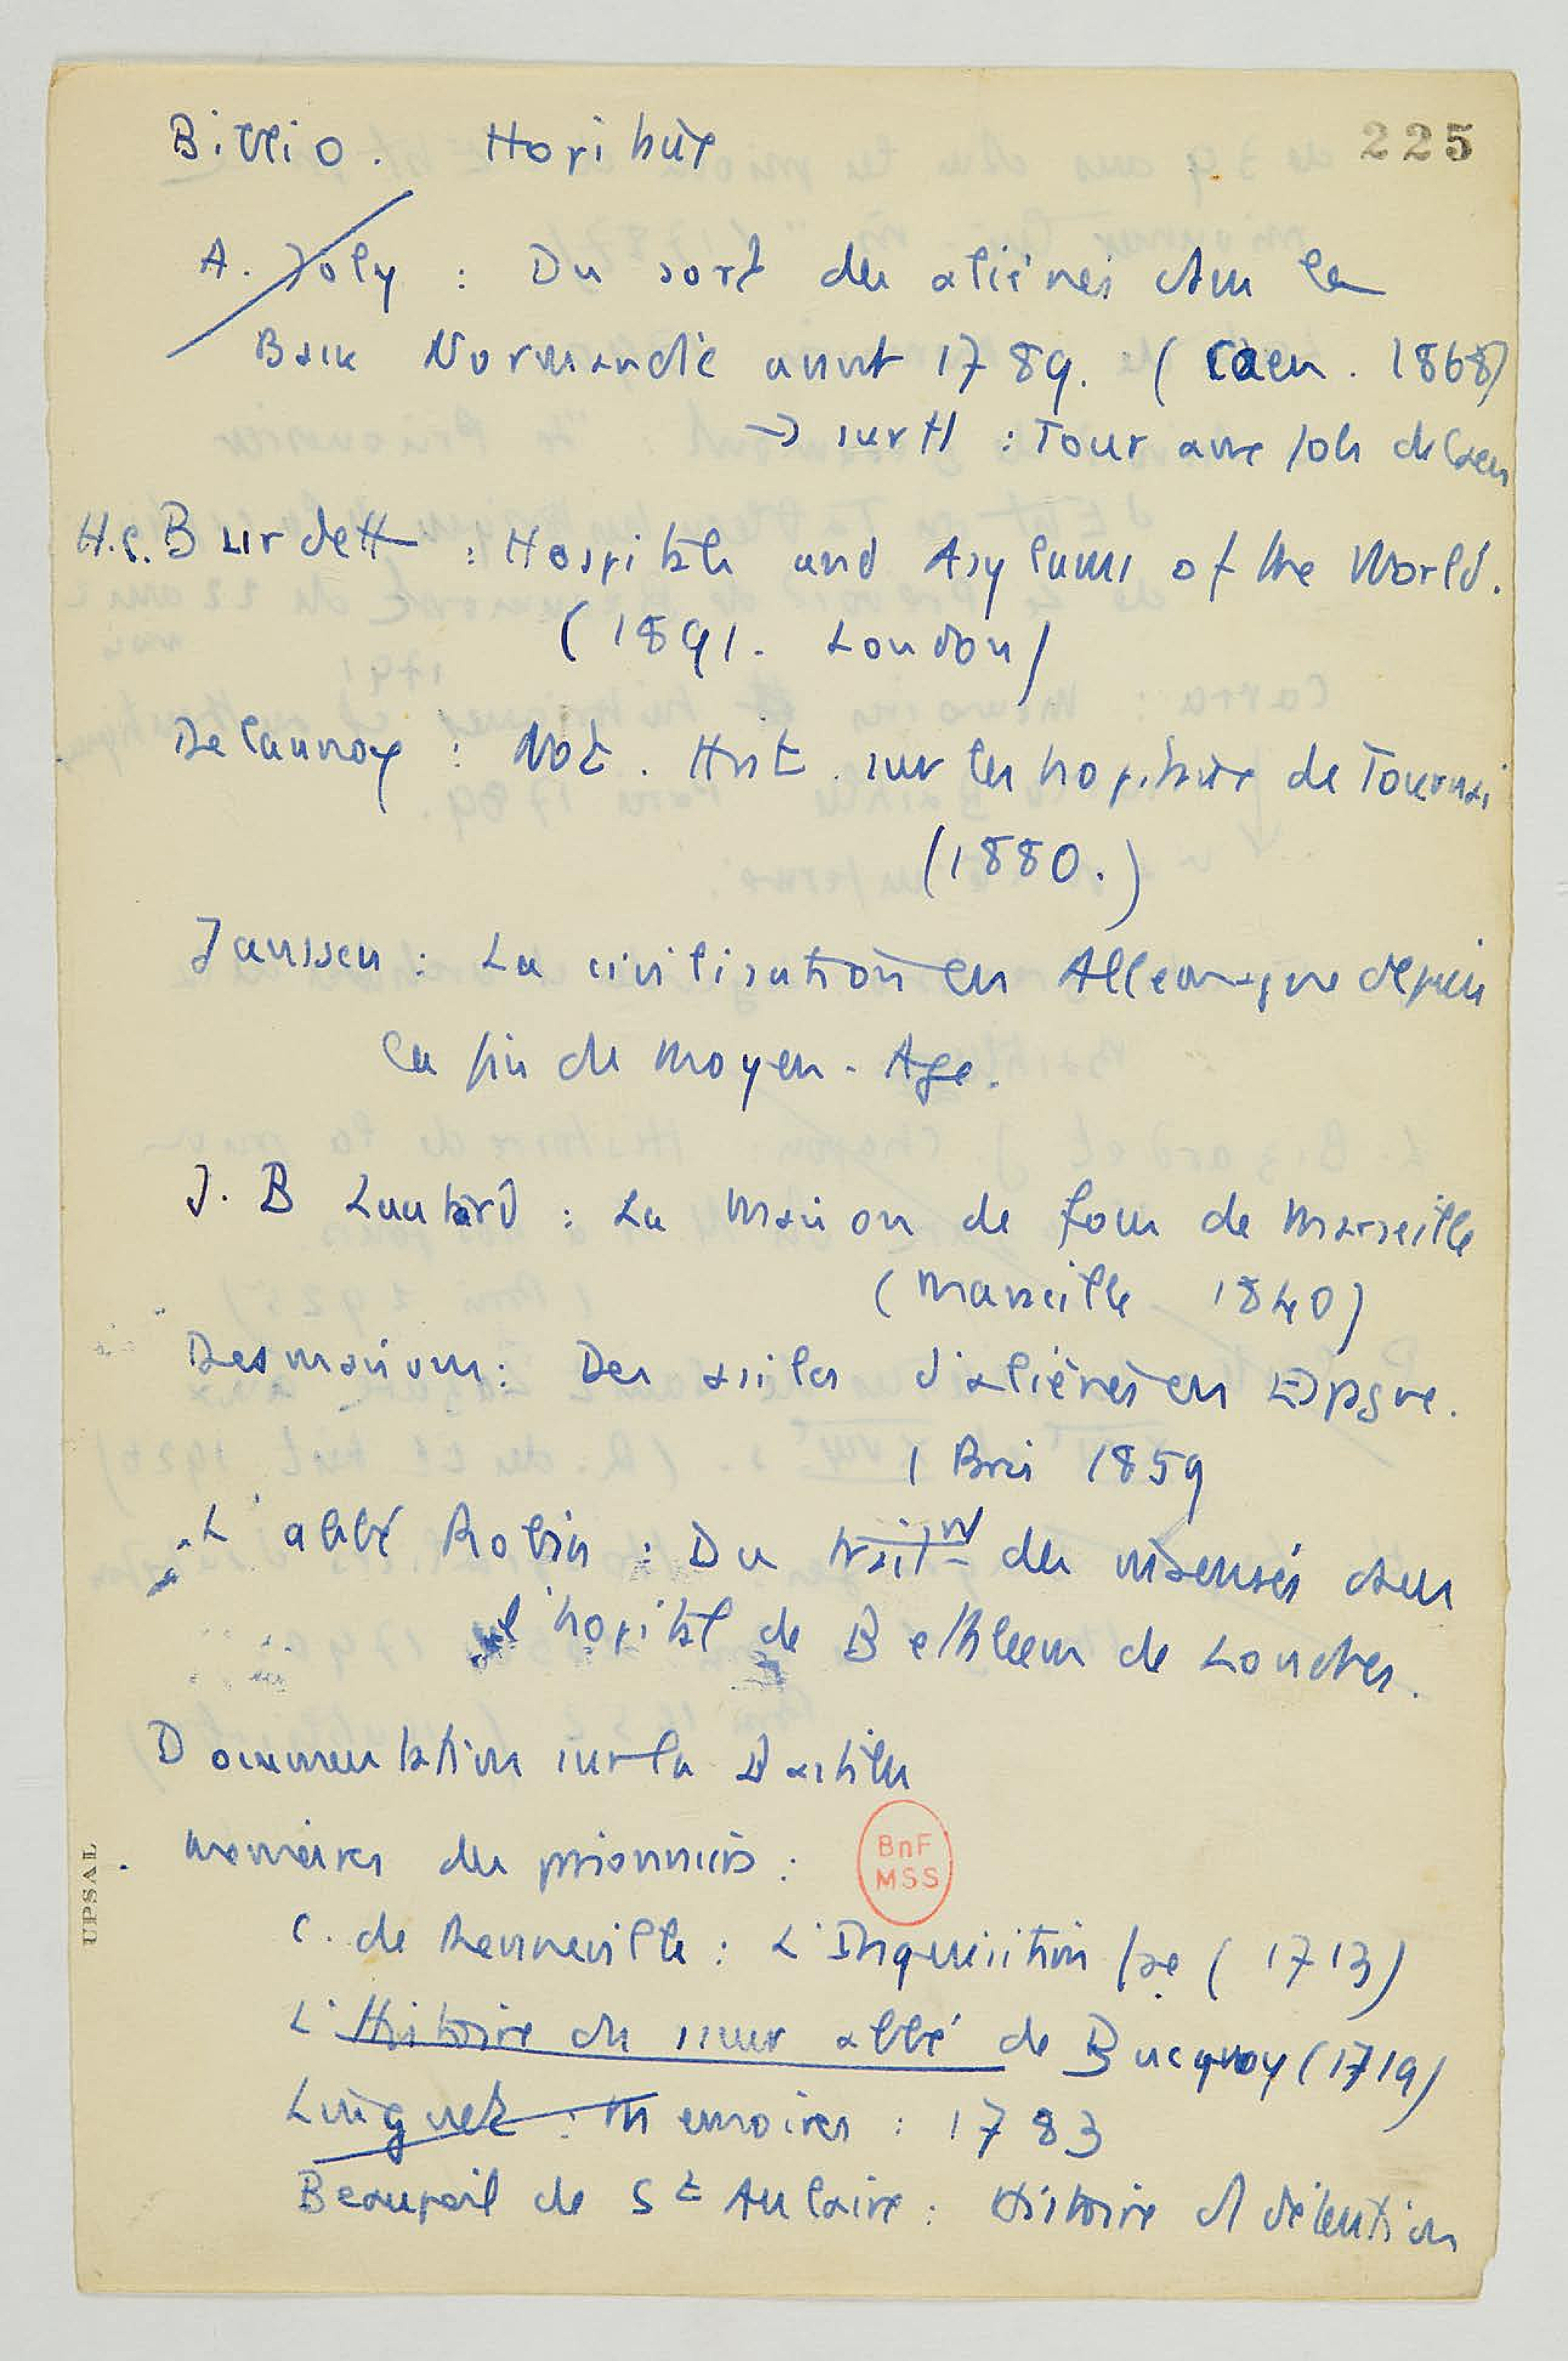 225
Biblio. Hopitaux
A. Joly : Du sort des aliénés dans la
Basse Normandie avant 1789. (Caen. 1868)
→ surtt : Tour aux fols de Caen
H.C. Burdett : Hospitals and Asylums of the World.
(1891. London)
Delaunoy : Not. Hist. sur les hopitaux de Tournai
(1880.)
Janssen : La civilisation en Allemagne depuis
la fin du Moyen-Age.
J. B Lautard : La maison de fous de Marseille
(Marseille 1840)
Desmaisons : Des asiles d'aliénés en Espagne.
( Paris 1859
L'abbé Robin : Du traitnt des insensés dans
l'hopital de Bethleem de Londres.
Documentation sur la Bastille
. Memoires des prisonniers :
BnF
MSS
UPSAL
C. de Renneville : L'Inquisition fse (1713)
L'Histoire du sieur abbé de Bucquoy (1719)
Linguet : Memoires : 1783
Beaupoil de St Aulaire : Histoire d détention